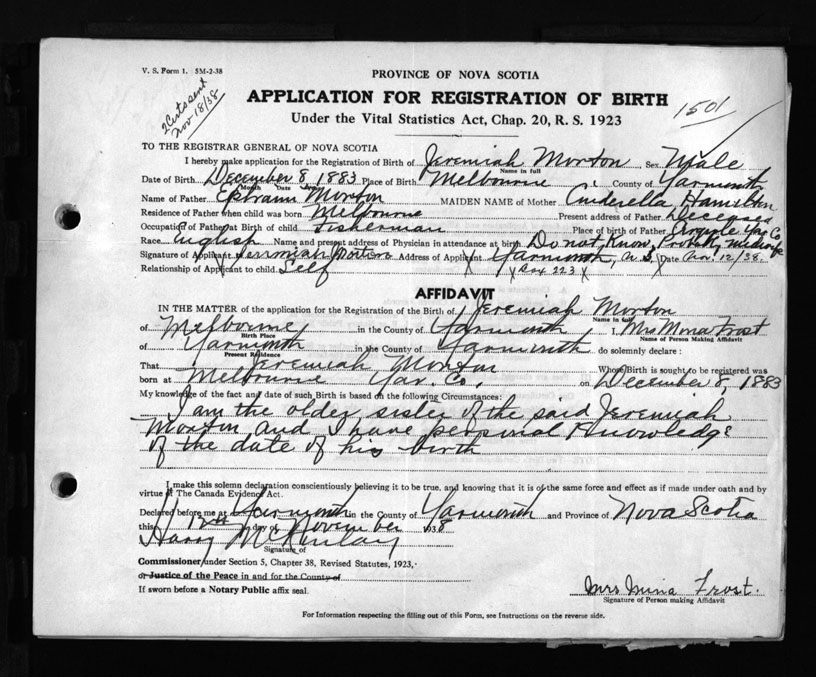 V. S. Form 1. 5M-2-38
2 Certs sent
Nov 18/38
PROVINCE OF NOVA SCOTIA
APPLICATION FOR REGISTRATION OF BIRTH
1501
Under the Vital Statistics Act, Chap. 20, R. S. 1923
TO THE REGISTRAR GENERAL OF NOVA SCOTIA
I hereby make application for the Registration of Birth of Jeremiah Morton Sex Male
Name in full
Date of Birth December 8 1883 Place of Birth Melbourne County of Yarmouth
Month Date
Name of Father Ephraim Morton MAIDEN NAME of Mother Cinderella Hamilton
Residence of Father when child was born Melbourne Present address of Father Deceased
Occupation of Father at Birth of child Fisherman Place of birth of Father Argyle Yar Co.
Race English Name and present address of Physician in attendance at birth Do not Know, Probably midwife
Signature of Applicant Jerrmiah Morton Address of Applicant Yarmouth, N.S. Date Nov. 12/38.
Relationship of Applicant to child Self Box 223
AFFIDAVIT
IN THE MATTER of the application for the Registration of the Birth of Jeremiah Morton
Name in full
of Melbourne in the County of Yarmouth I, Mrs Mona Frost
Birth Place Name of Person Making Affidavit
of Yarmouth in the County of Yarmouth do solemnly declare :
Present Residence
That Jeremiah Morton Whose Birth is sought to be registered was
born at Melbourne Yar. Co. on December 8, 1883
My knowledge of the fact and date of such Birth is based on the following Circumstances:
I am the older sister of the said Jeremiah
Morton and I have personal Knowledge
of the date of his birth
I make this solemn declaration conscientiously believing it to be true, and knowing that it is of the same force and effect as if made under oath and by
virtue of The Canada Evidence Act.
Declared before me at Yarmouth in the County of Yarmouth and Province of Nova Scotia
this 12th day of November 1938
Harry McKinlay
Signature of
Commissioner under Section 5, Chapter 38, Revised Statutes, 1923,
or Justice of the Peace in and for the County of
If sworn before a Notary Public affix seal.
Mrs Mina Frost.
Signature of Person making Affidavit
For Information respecting the filling out of this Form, see Instructions on the reverse side.